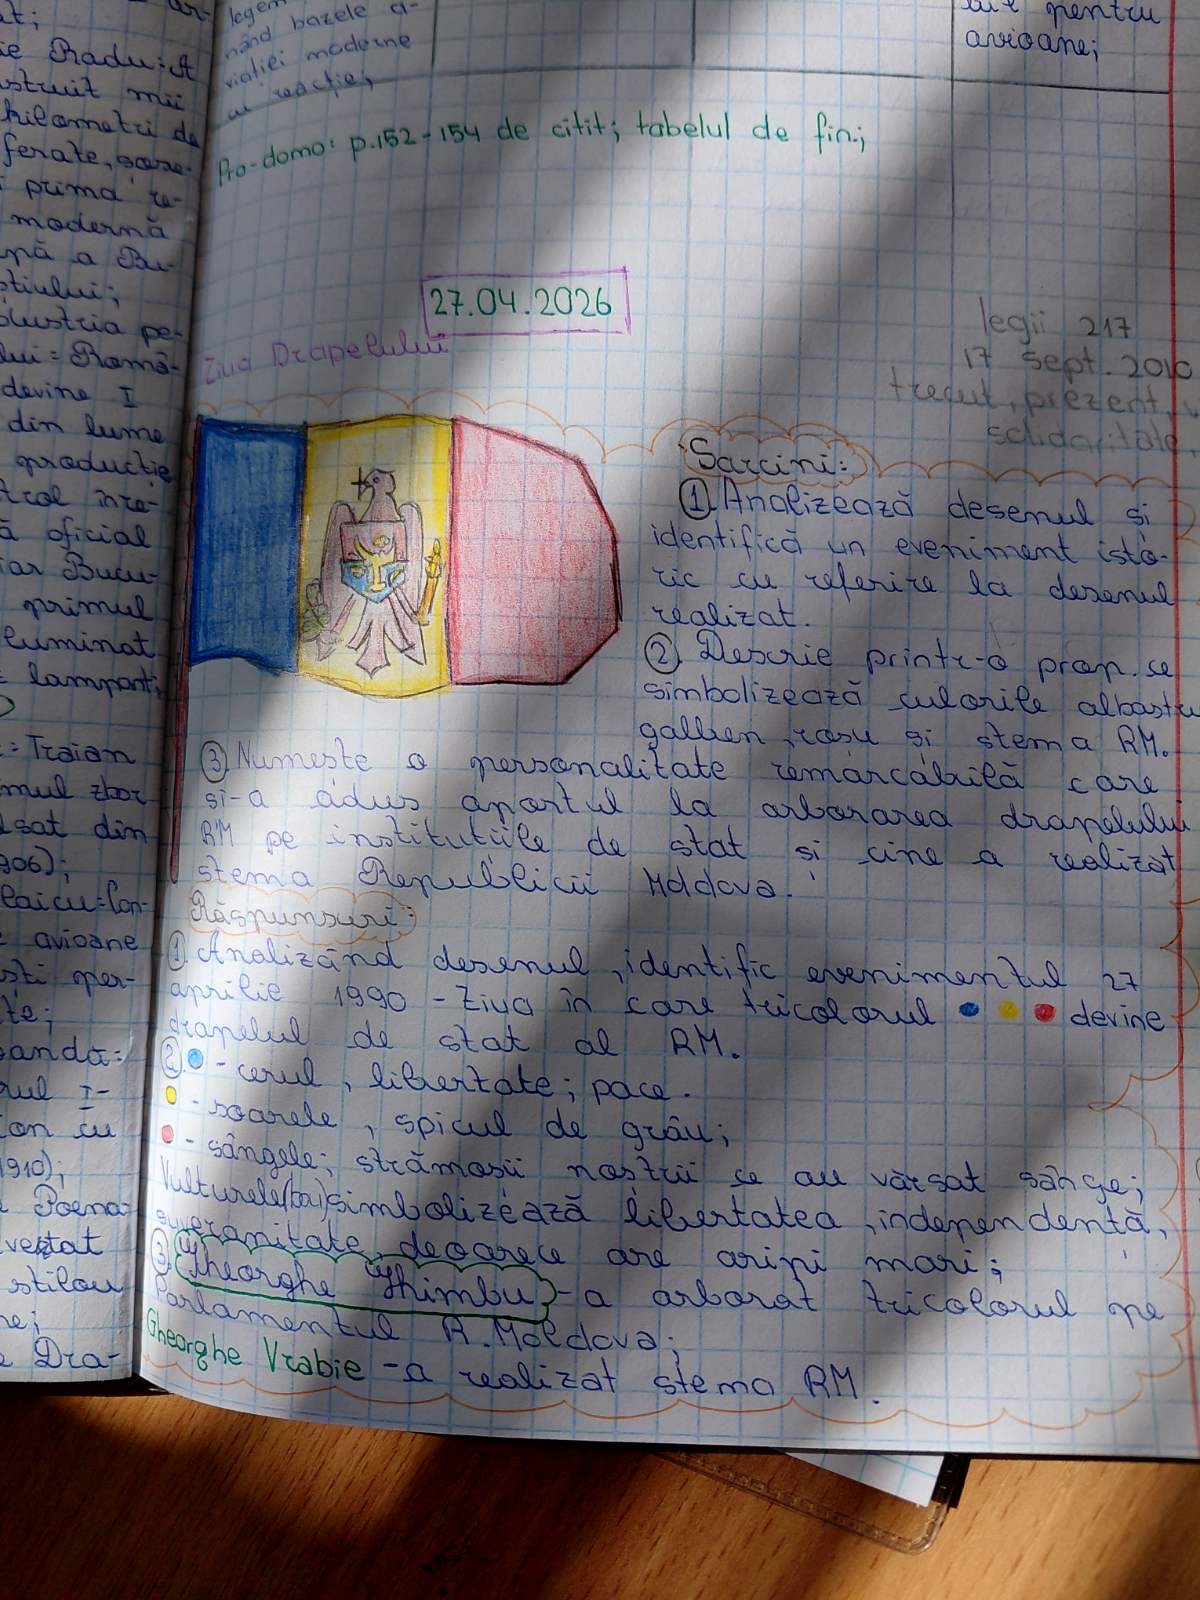 ie Radu: A
struit mii
kilometri de
ferate, sose-
i prima re-
modernă
pă a Bu-
știului;
dustria pe-
lui = Româ-
devine I
din lume
producție
trol înre-
ă oficial
iar Bucu-
primul
luminat
lampant;
= Traian
mul zbor
sat din
906);
laicu = Con-
avioane
sti per-
te;
oandă =
rul I-
ion cu
1910);
Poena-
ventat
stilou
ne;
Dra-
legem
nând bazele a-
viației moderne
cu reacție;
pentru
avioane;
Pro-domo: p.152-154 de citit; tabelul de fin.;
27.04.2026
Ziua Drapelului
legii 217
17 sept. 2010
trecut, prezent, v
solidaritate,
Sarcini:
① Analizează desenul și
identifică un eveniment isto-
ric cu referire la desenul
realizat.
② Descrie printr-o prop. ce
simbolizează culorile albastru
galben, roșu și stema RM.
③ Numește o personalitate remarcabilă care
și-a adus aportul la arborarea drapelului
RM pe instituțiile de stat și cine a realizat
stema Republicii Moldova.
Răspunsuri:
① Analizând desenul, identific evenimentul 27
aprilie 1990 - Ziua în care tricolorul devine
drapelul de stat al RM.
② - cerul, libertate; pace.
- soarele, spicul de grâu;
- sângele; strămoșii noștrii ce au vărsat sânge;
Vulturele(ul) simbolizează libertatea, independență,
suveranitate, deoarece are aripi mari;
③ Gheorghe Ghimbu - a arborat tricolorul pe
Parlamentul R. Moldova;
Gheorghe Vrabie - a realizat stema RM.